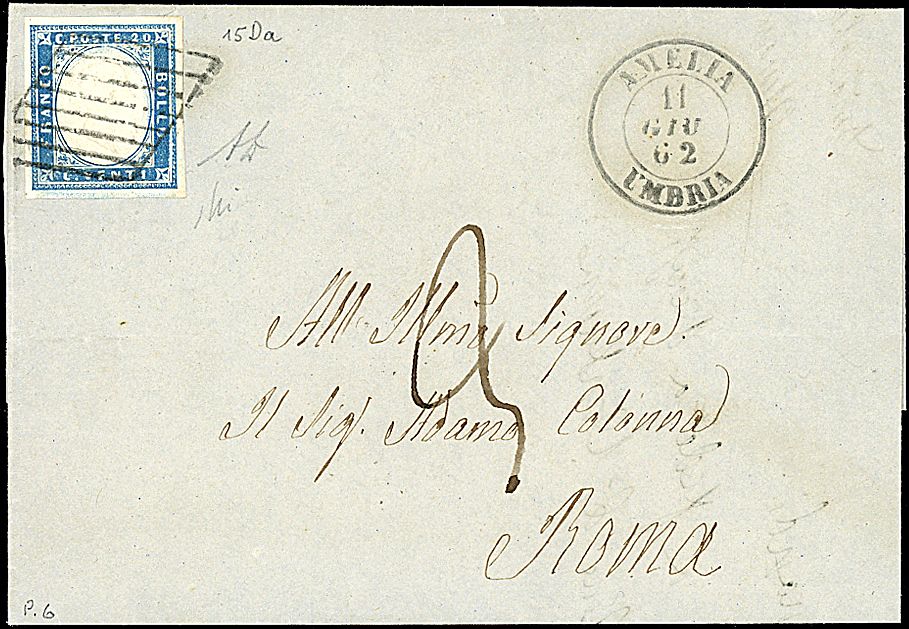 C. POSTE 20
FRANCO
BOLLO
CENTI
15Da
AMELIA
11
GIU
62
UMBRIA
All' Illmo Signore.
Il Sig. Adamo Colonna
Roma
P. 6